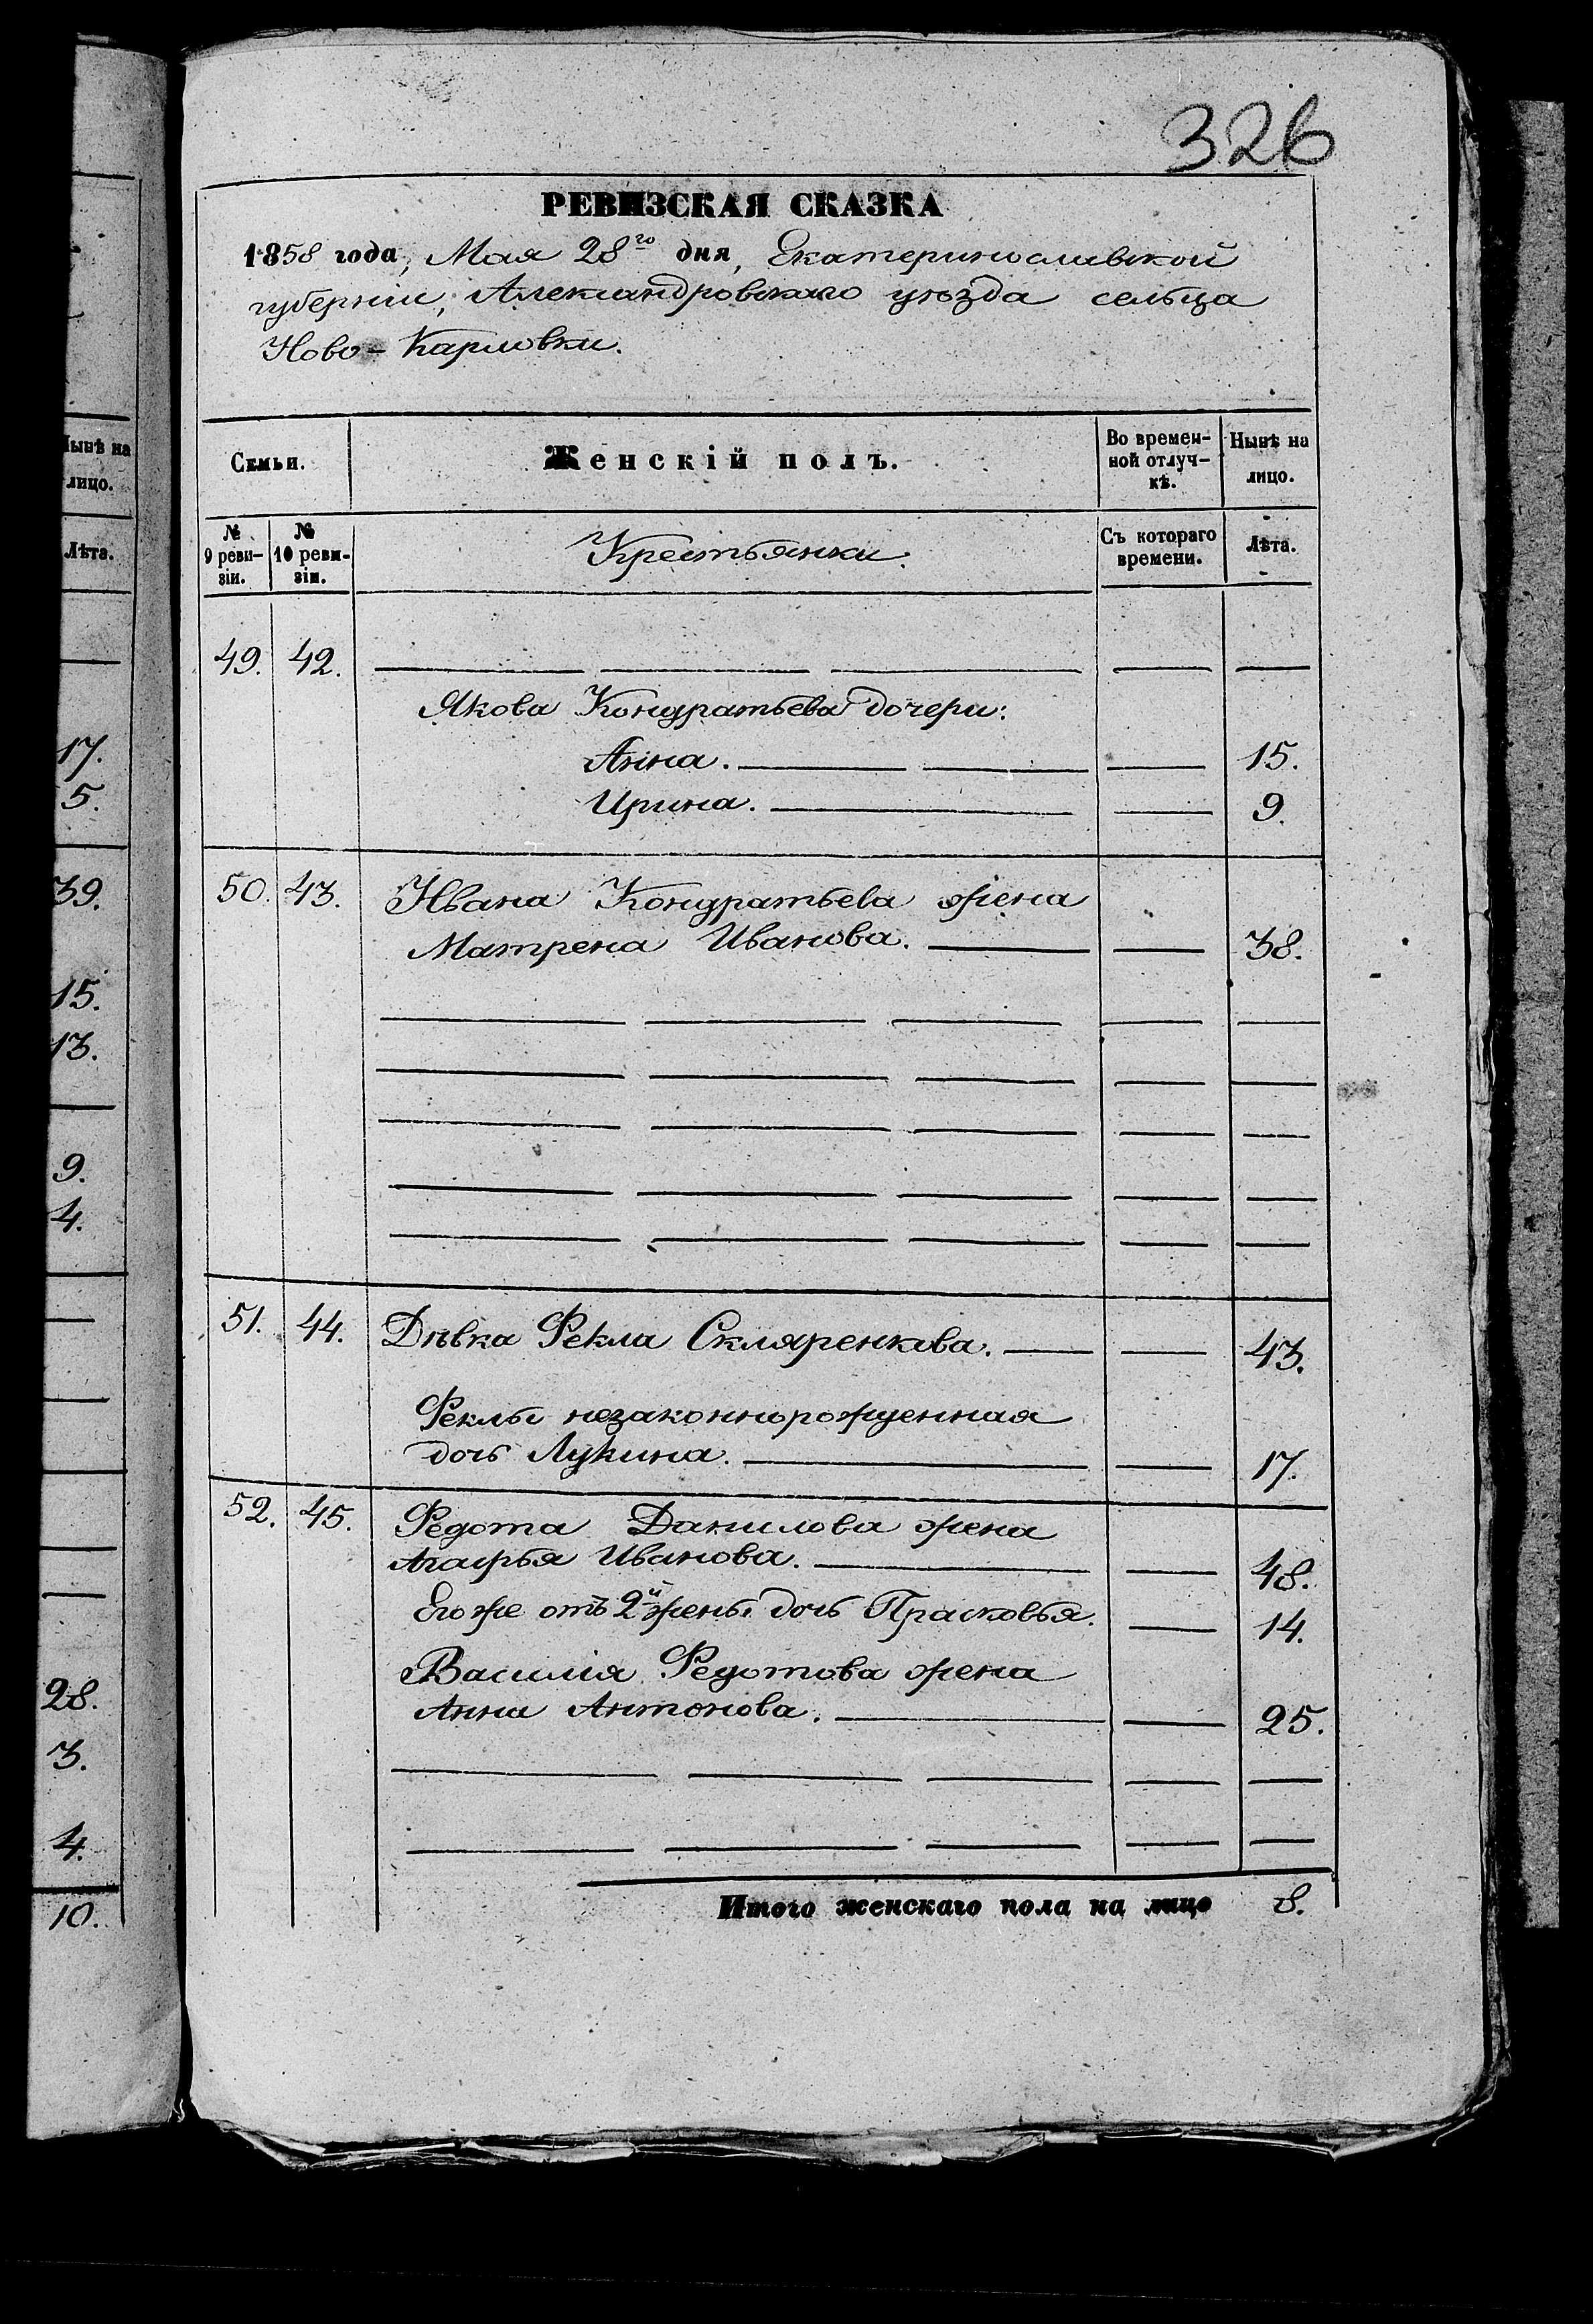 326
РЕВИЗСКАЯ СКАЗКА
1858 года, Мая 28го дня, Екатеринославской
губерніи, Александровскаго уѣзда сельца
Ново-Карловки.
Семьи.
Женскій полъ.
Во времен-
ной отлуч-
кѣ.
Нынѣ на
лицо.
№ 9 реви-
зіи.
№ 10 реви-
зіи.
Крестьянки.
Съ котораго
времени.
Лѣта.
49. 42.
Якова Кондратьева дочери:
Анна. 15.
Ирина. 9.
50. 43. Ивана Кондратьева жена
Матрена Иванова. 38.
51. 44. Дѣвка Фекла Скляренкова. 43.
Феклы незаконнорожденная
дочь Лукина. 17.
52. 45. Федота Данилова жена
Агафья Иванова. 48.
Его же отъ 2й жены дочь Прасковья. 14.
Василія Федотова жена
Анна Антонова. 25.
Итого женскаго пола на лицо 8.
Нынѣ на
лицо.
Лѣта.
17.
5.
39.
15.
13.
9.
4.
28.
3.
4.
10.